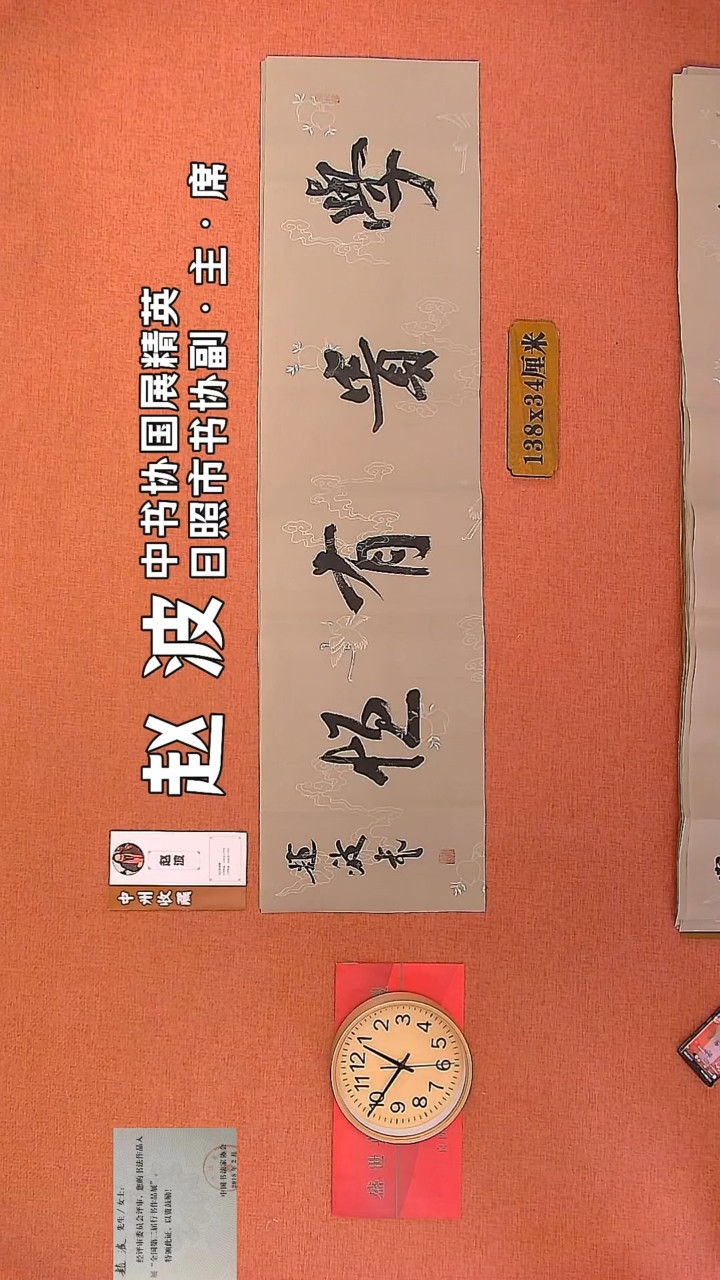 赵波
中书协国展精英
日照市书协副·主·席
学贵有恒
赵波书
138x34厘米
赵波
中州收藏
12
1
2
3
4
5
6
7
8
9
10
11
盛世
赵波 先生/女士:
经评审委员会评审,您的书法作品入
展“全国第二届行书作品展”。
特颁此证,以资鼓励!
中国书法家协会